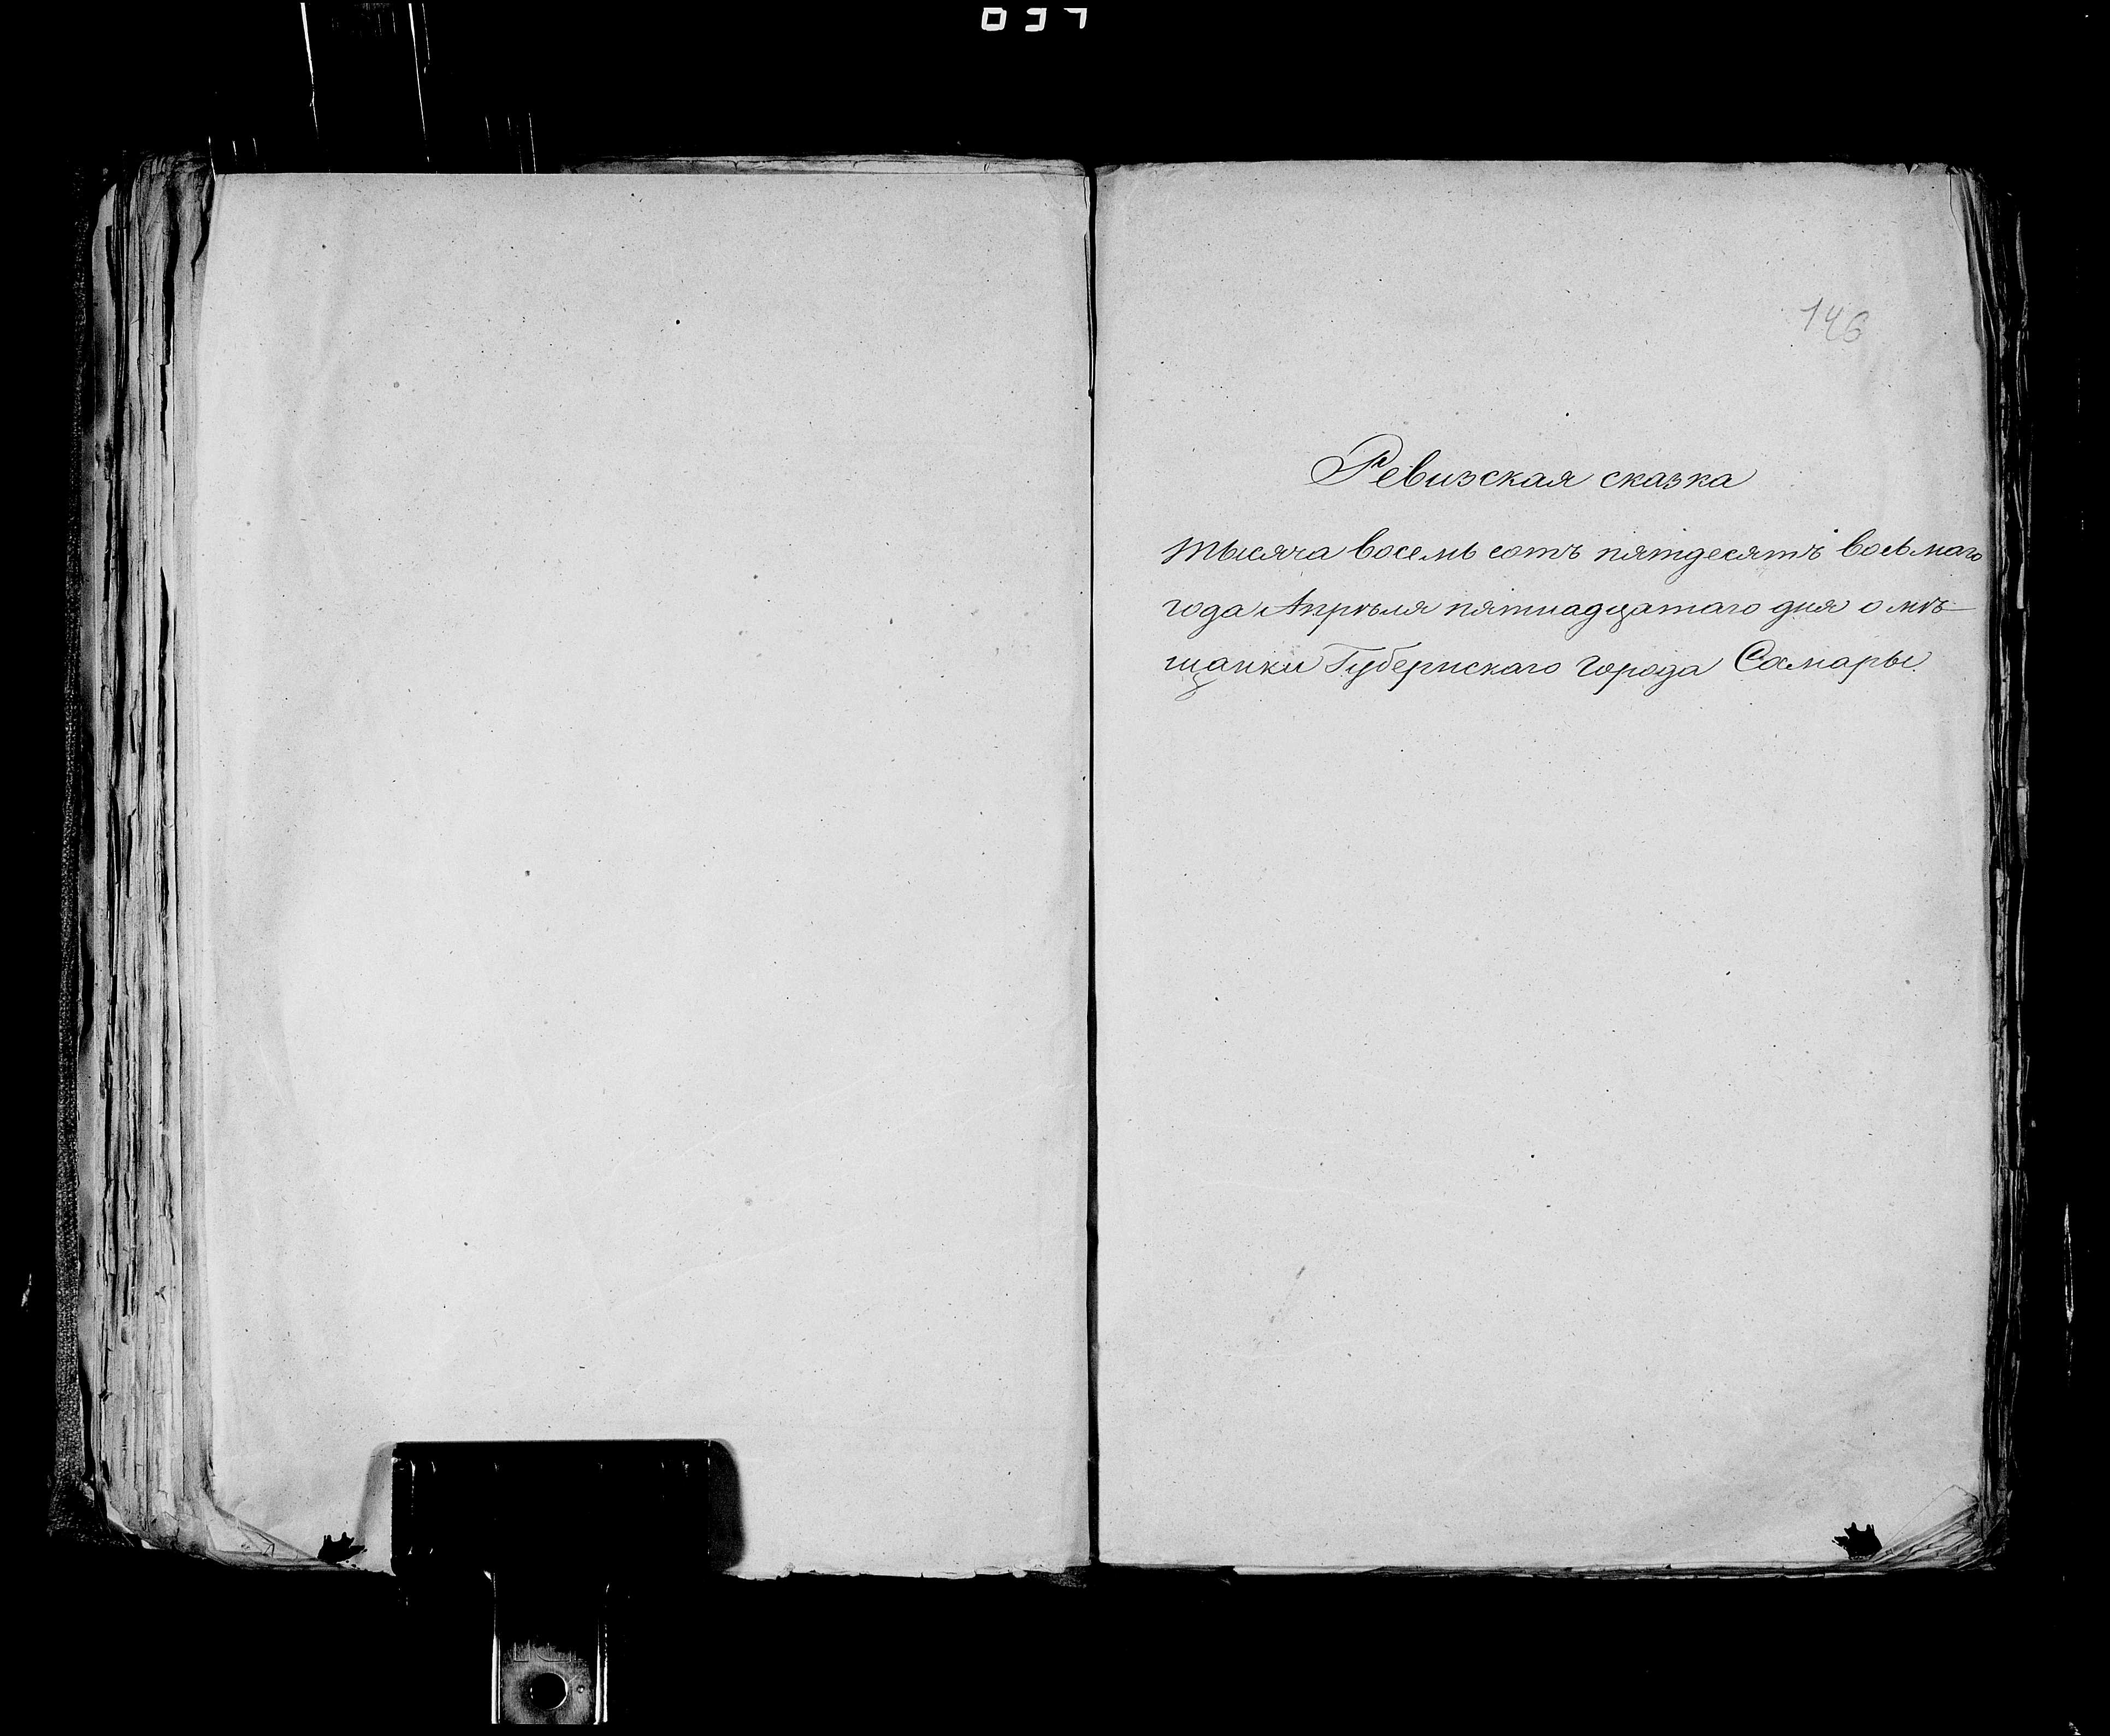 146
Ревизская сказка
тысяча восемь сотъ пятдесятъ восьмаго
года Апрѣля пятнадцатаго дня о мѣ-
щанки Губернскаго города Самары